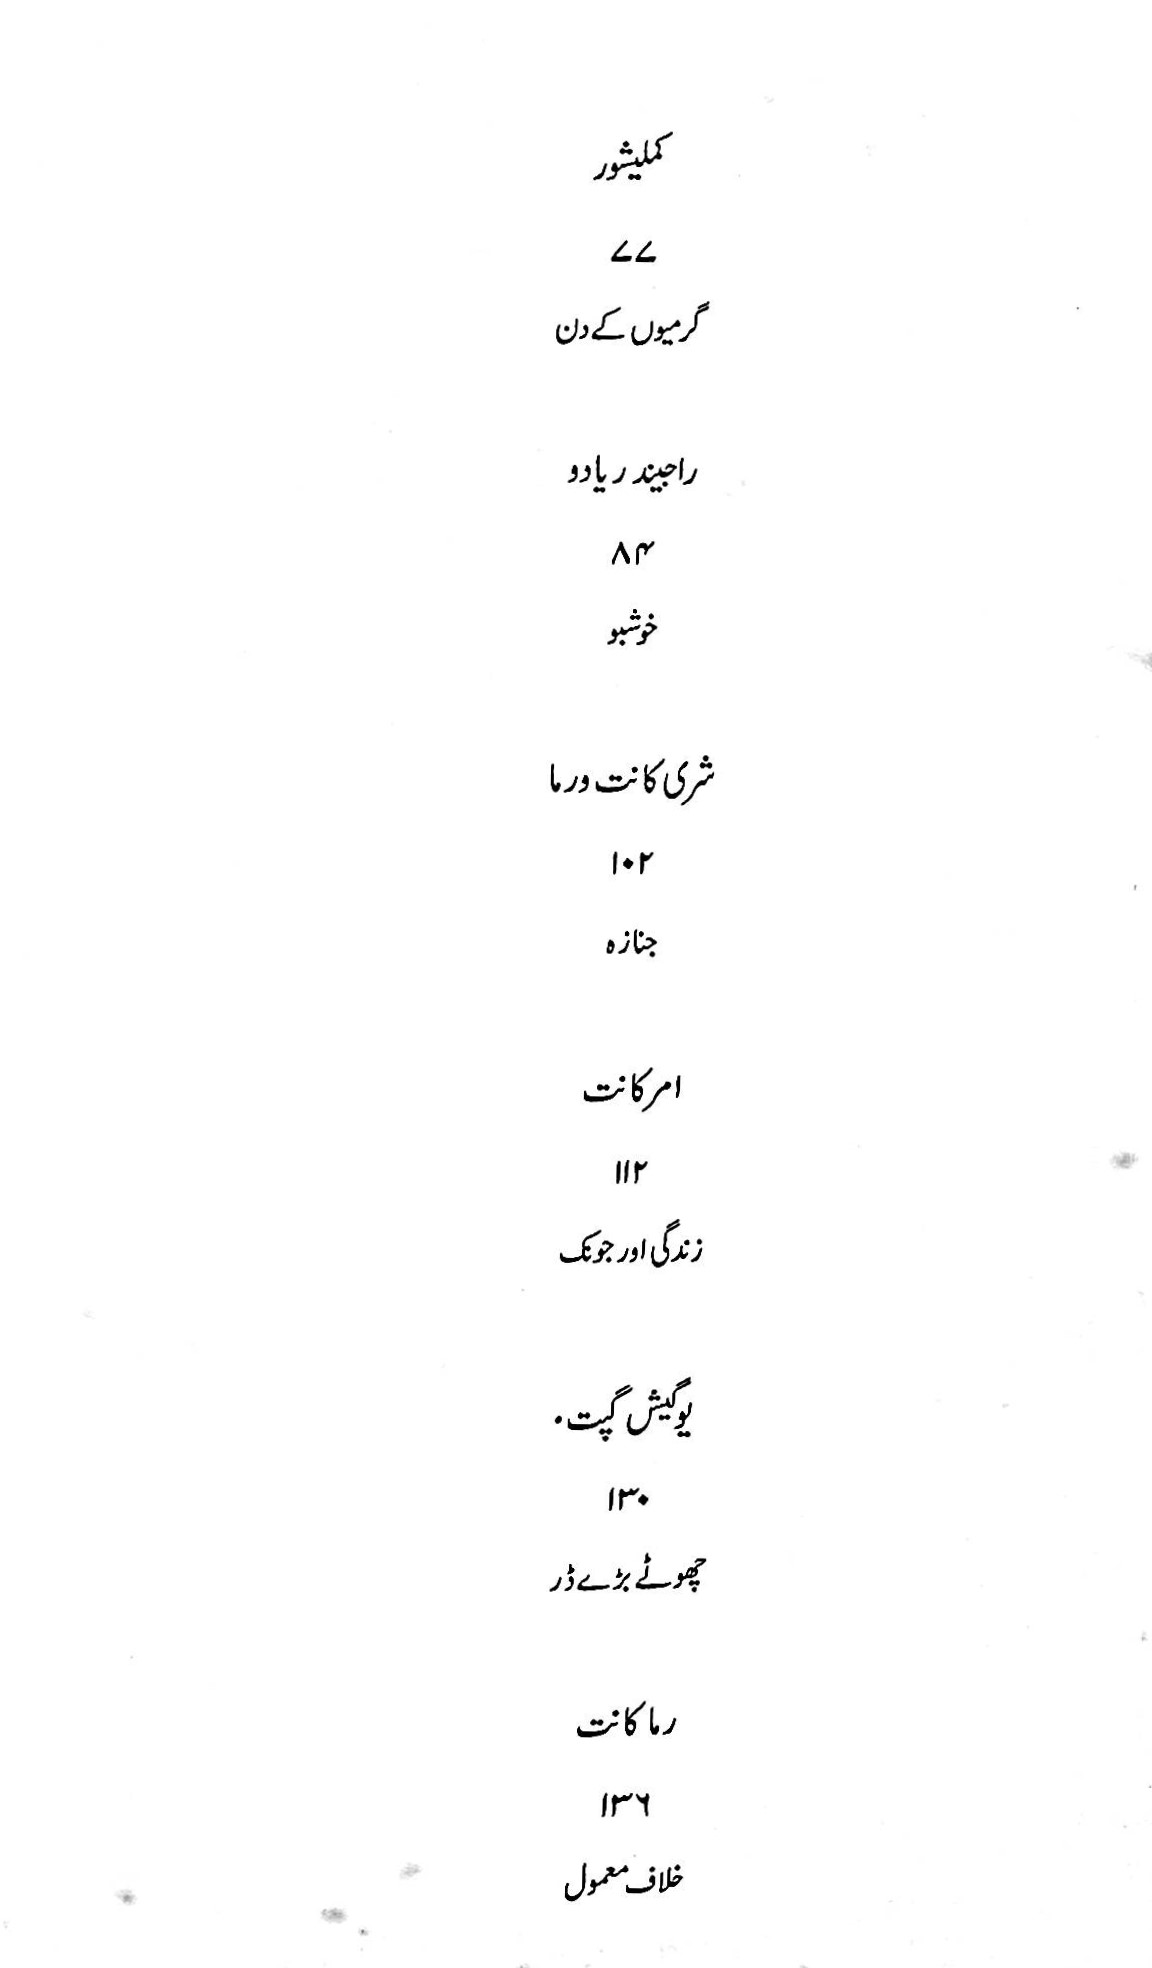 کملیشور
۷۷
گرمیوں کے دن
راجیندر یادو
۸۴
خوشبو
شری کانت ورما
۱۰۲
جنازہ
امرکانت
۱۱۲
زندگی اور جونک
یوگیش گپت
۱۳۰
چھوٹے بڑے ڈر
رما کانت
۱۳۶
خلاف معمول